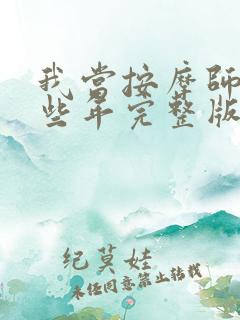 我当按摩师
些年完整版
纪莫娃
未经同意禁止转载